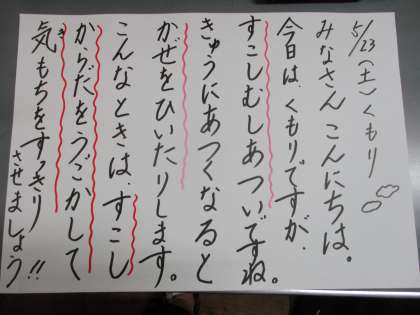 5/23(土)くもり
みなさん こんにちは。
今日は、くもりですが、
すこしむしあついですね。
きゅうにあつくなると
かぜをひいたりします。
こんなときは、すこし
からだをうごかして
気もちをすっきり
させましょう!!
き